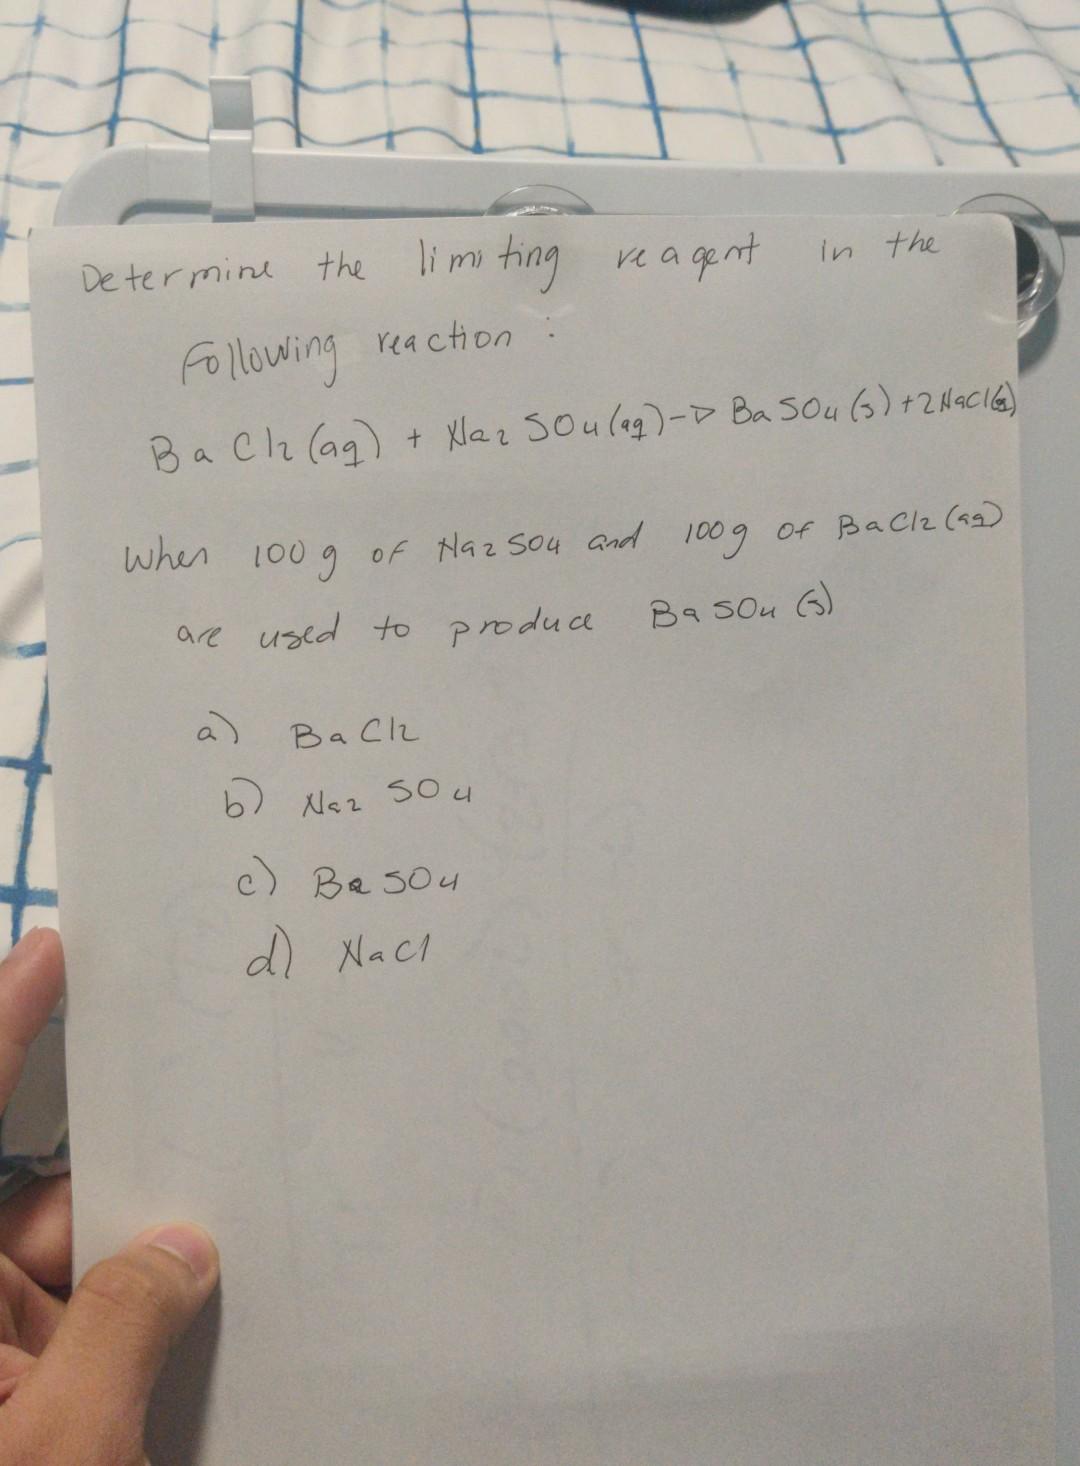 Determine the limiting reagent in the
Following reaction :
BaCl2(aq) + Na2SO4(aq) -> BaSO4(s) + 2NaCl(s)
When 100g of Na2SO4 and 100g of BaCl2(aq)
are used to produce BaSO4(s)
a) BaCl2
b) Na2SO4
c) BaSO4
d) NaCl